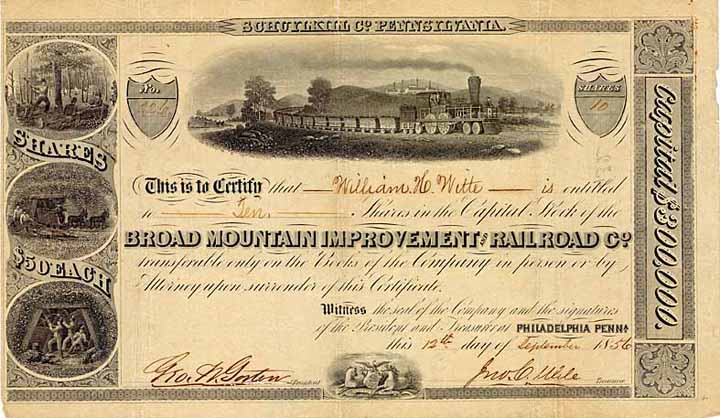 SCHUYLKILL CO. PENNSYLVANIA.
No.
SHARES
10
SHARES
$50 EACH
Capital $300,000.
This is to Certify that William H. Witte is entitled
to Ten Shares in the Capital Stock of the
BROAD MOUNTAIN IMPROVEMENT AND RAILROAD CO.
transferable only on the Books of the Company in person or by
Attorney upon surrender of this Certificate.
Witness the seal of the Company and the signatures
of the President and Treasurer at PHILADELPHIA PENNA
this 12th day of September 1856
President
Treasurer